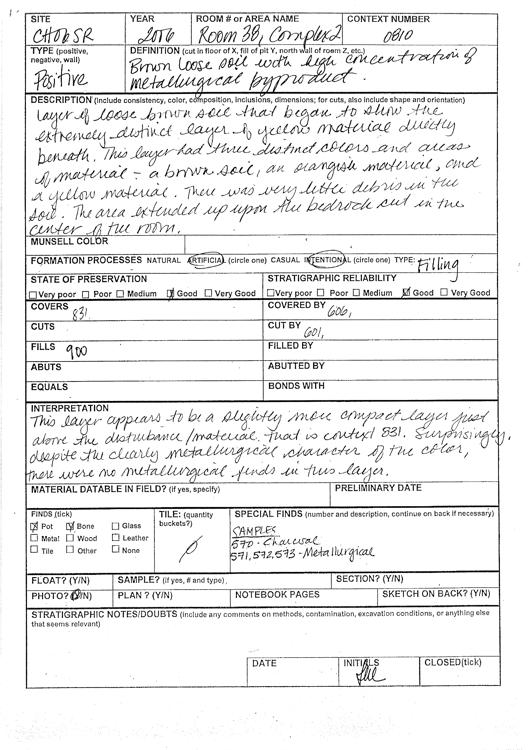 SITE YEAR ROOM # OR AREA NAME CONTEXT NUMBER
CH06SR 2006 Room 38, Complex 2 0810
TYPE (positive, negative, wall) DEFINITION (cut in floor of X, fill of pit Y, north wall of room Z, etc.)
Positive Brown loose soil with high concentration of
metallurgical byproduct.
DESCRIPTION (Include consistency, color, composition, inclusions, dimensions; for cuts, also include shape and orientation)
layer of loose brown soil that began to show the
extremely distinct layer of yellow material directly
beneath. This layer had three distinct colors and areas
of material - a brown soil, an orangish material, and
a yellow material. There was very little debris in the
soil. The area extended up upon the bedrock cut in the
center of the room.
MUNSELL COLOR
FORMATION PROCESSES NATURAL ARTIFICIAL (circle one) CASUAL INTENTIONAL (circle one) TYPE: Filling
STATE OF PRESERVATION STRATIGRAPHIC RELIABILITY
Very poor Poor Medium Good Very Good Very poor Poor Medium Good Very Good
COVERS 831 COVERED BY 606,
CUTS CUT BY 601,
FILLS 900 FILLED BY
ABUTS ABUTTED BY
EQUALS BONDS WITH
INTERPRETATION
This layer appears to be a slightly more compact layer just
above the disturbance/material that is context 831. Surprisingly,
despite the clearly metallurgical character of the color,
there were no metallurgical finds in this layer.
MATERIAL DATABLE IN FIELD? (if yes, specify) PRELIMINARY DATE
FINDS (tick) TILE: (quantity buckets?) SPECIAL FINDS (number and description, continue on back if necessary)
Pot Bone Glass SAMPLES
Metal Wood Leather 570 - Charcoal
Tile Other None 571, 572, 573 - Metallurgical
FLOAT? (Y/N) SAMPLE? (if yes, # and type) SECTION? (Y/N)
PHOTO? (Y/N) PLAN ? (Y/N) NOTEBOOK PAGES SKETCH ON BACK? (Y/N)
STRATIGRAPHIC NOTES/DOUBTS (Include any comments on methods, contamination, excavation conditions, or anything else
that seems relevant)
DATE INITIALS CLOSED(tick)